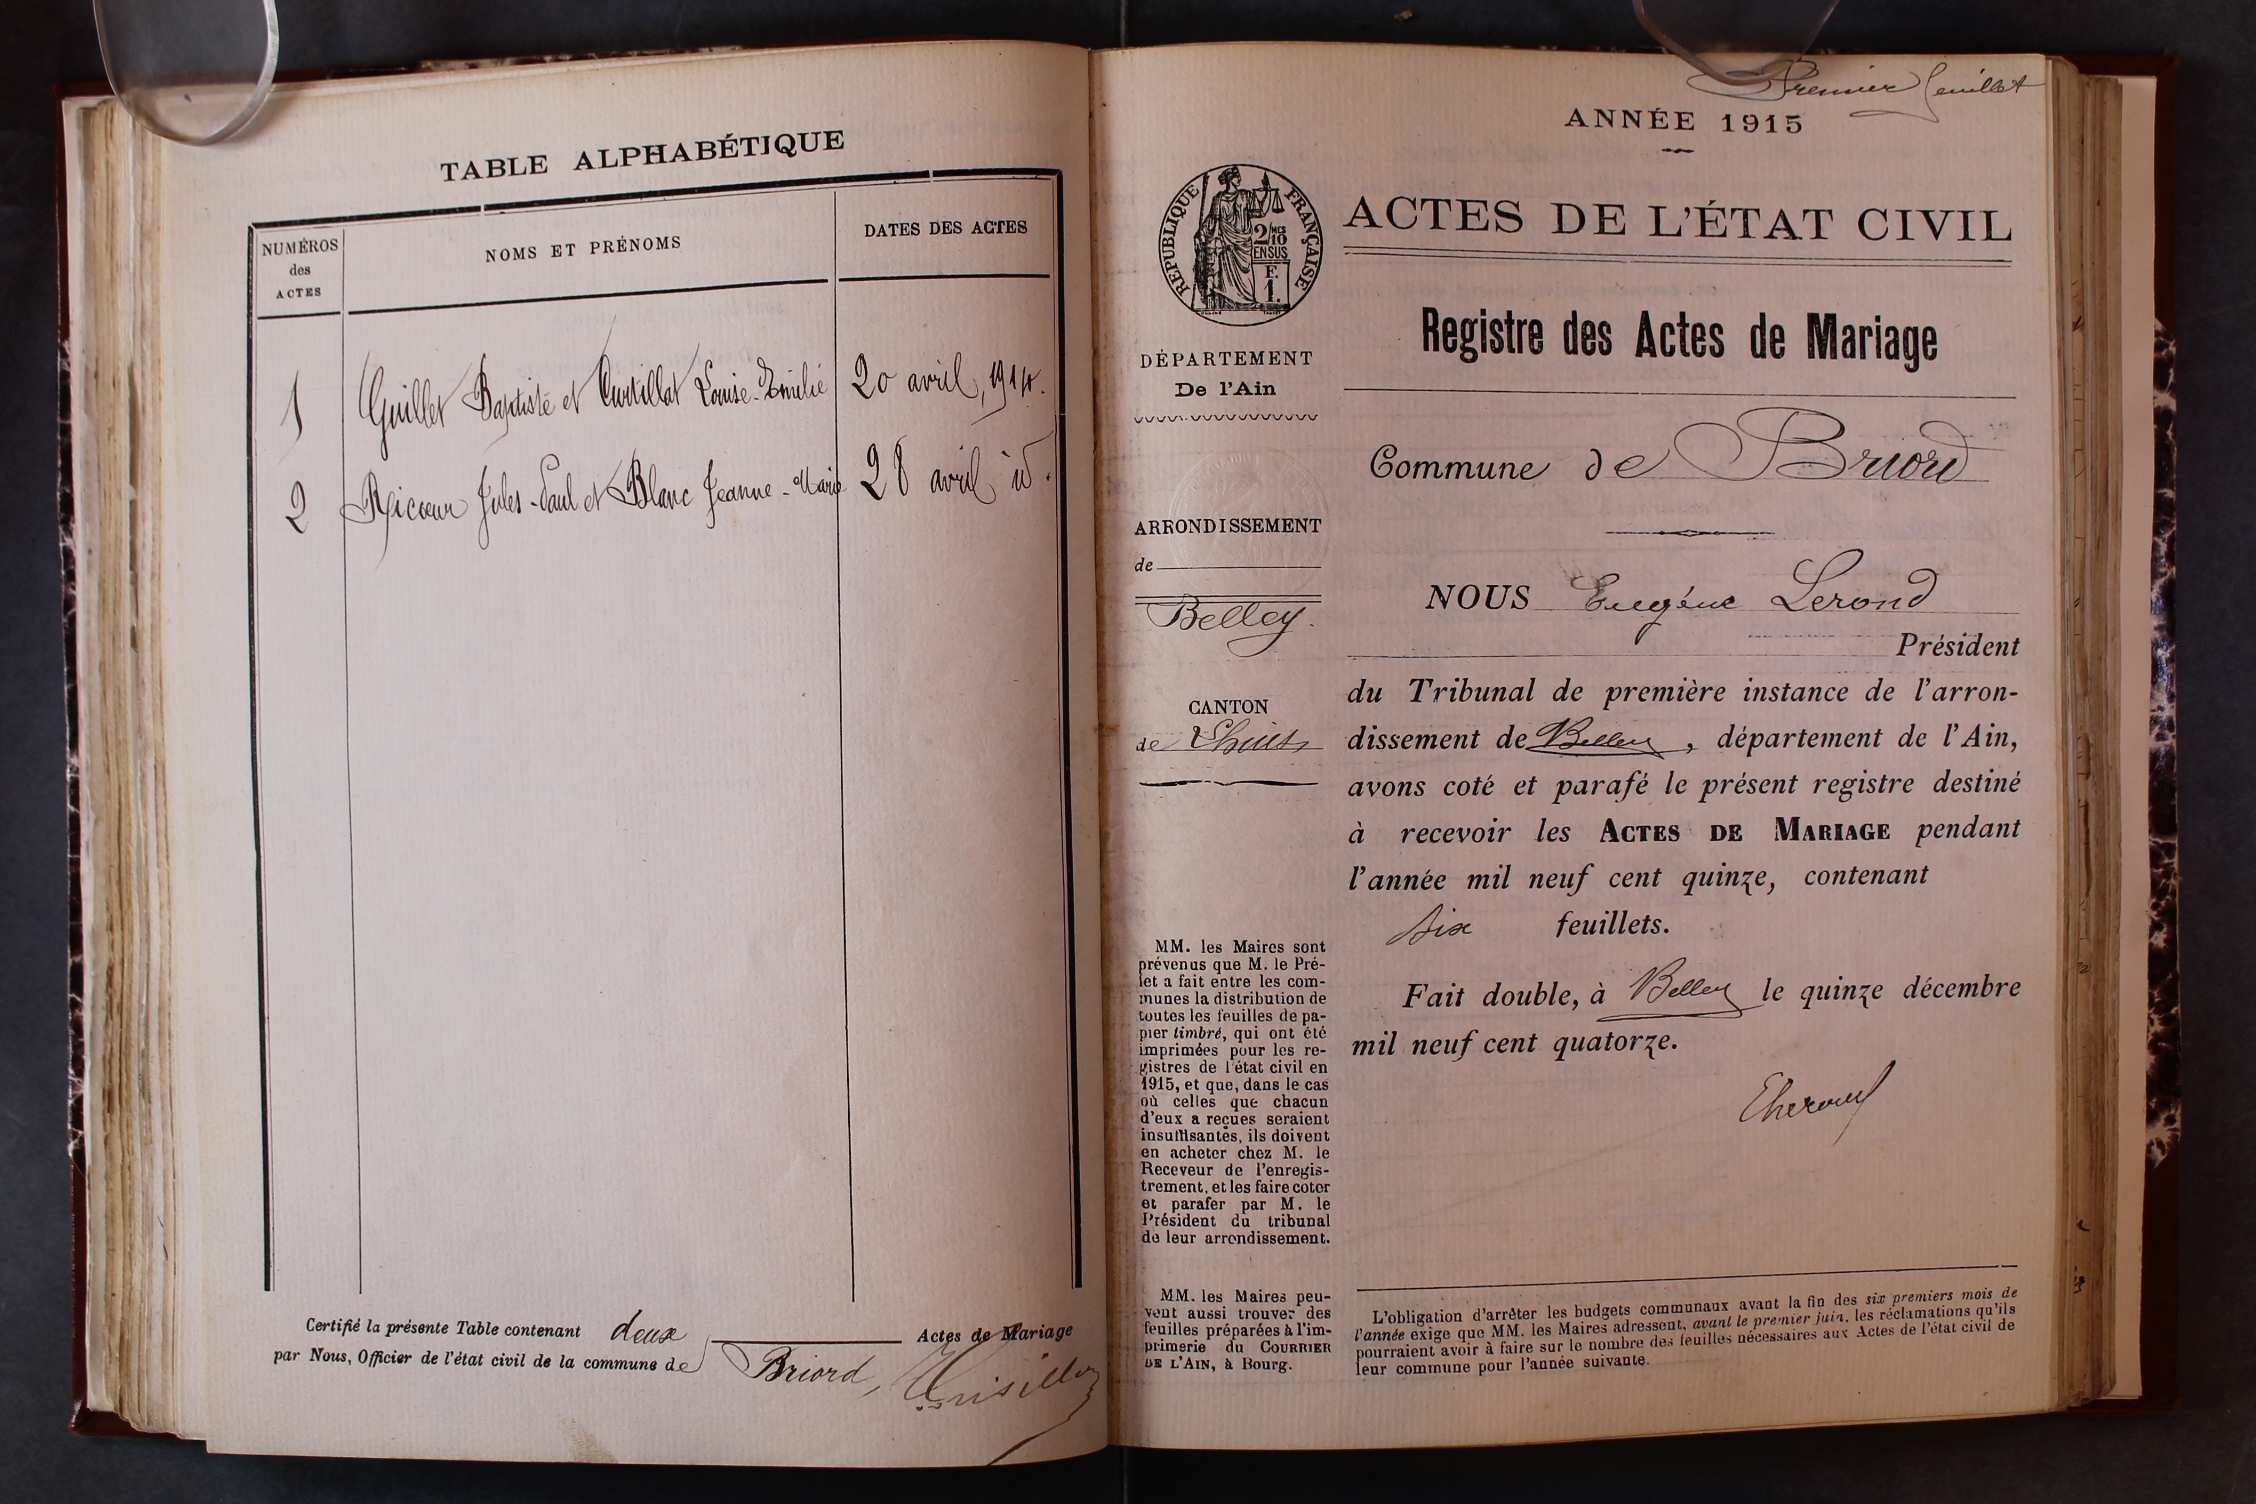 TABLE ALPHABÉTIQUE
NUMÉROS
des
ACTES
NOMS ET PRÉNOMS
DATES DES ACTES
1 Guillet Baptiste et Curtillat Louise-Emilie 20 avril, 1914.
2 Ricœur Jules-Paul et Blanc Jeanne-Marie 28 avril id.
Certifié la présente Table contenant deux Actes de Mariage
par Nous, Officier de l'état civil de la commune de Briord,
Premier feuillet
ANNÉE 1915
RÉPUBLIQUE FRANÇAISE
2/10
EN SUS
F.
1.
ACTES DE L'ÉTAT CIVIL
Registre des Actes de Mariage
DÉPARTEMENT
De l'Ain
Commune de Briord
ARRONDISSEMENT
de
Belley.
CANTON
de Lhuis
NOUS Eugène Lerond
Président
du Tribunal de première instance de l'arron-
dissement de Belley, département de l'Ain,
avons coté et parafé le présent registre destiné
à recevoir les ACTES DE MARIAGE pendant
l'année mil neuf cent quinze, contenant
six feuillets.
Fait double, à Belley le quinze décembre
mil neuf cent quatorze.
MM. les Maires sont
prévenus que M. le Pré-
fet a fait entre les com-
munes la distribution de
toutes les feuilles de pa-
pier timbré, qui ont été
imprimées pour les re-
gistres de l'état civil en
1915, et que, dans le cas
où celles que chacun
d'eux a reçues seraient
insuffisantes, ils doivent
en acheter chez M. le
Receveur de l'enregis-
trement, et les faire coter
et parafer par M. le
Président du tribunal
de leur arrondissement.
MM. les Maires peu-
vent aussi trouver des
feuilles préparées à l'im-
primerie du COURRIER
DE L'AIN, à Bourg.
L'obligation d'arrêter les budgets communaux avant la fin des six premiers mois de
l'année exige que MM. les Maires adressent, avant le premier juin, les réclamations qu'ils
pourraient avoir à faire sur le nombre des feuilles nécessaires aux Actes de l'état civil de
leur commune pour l'année suivante.